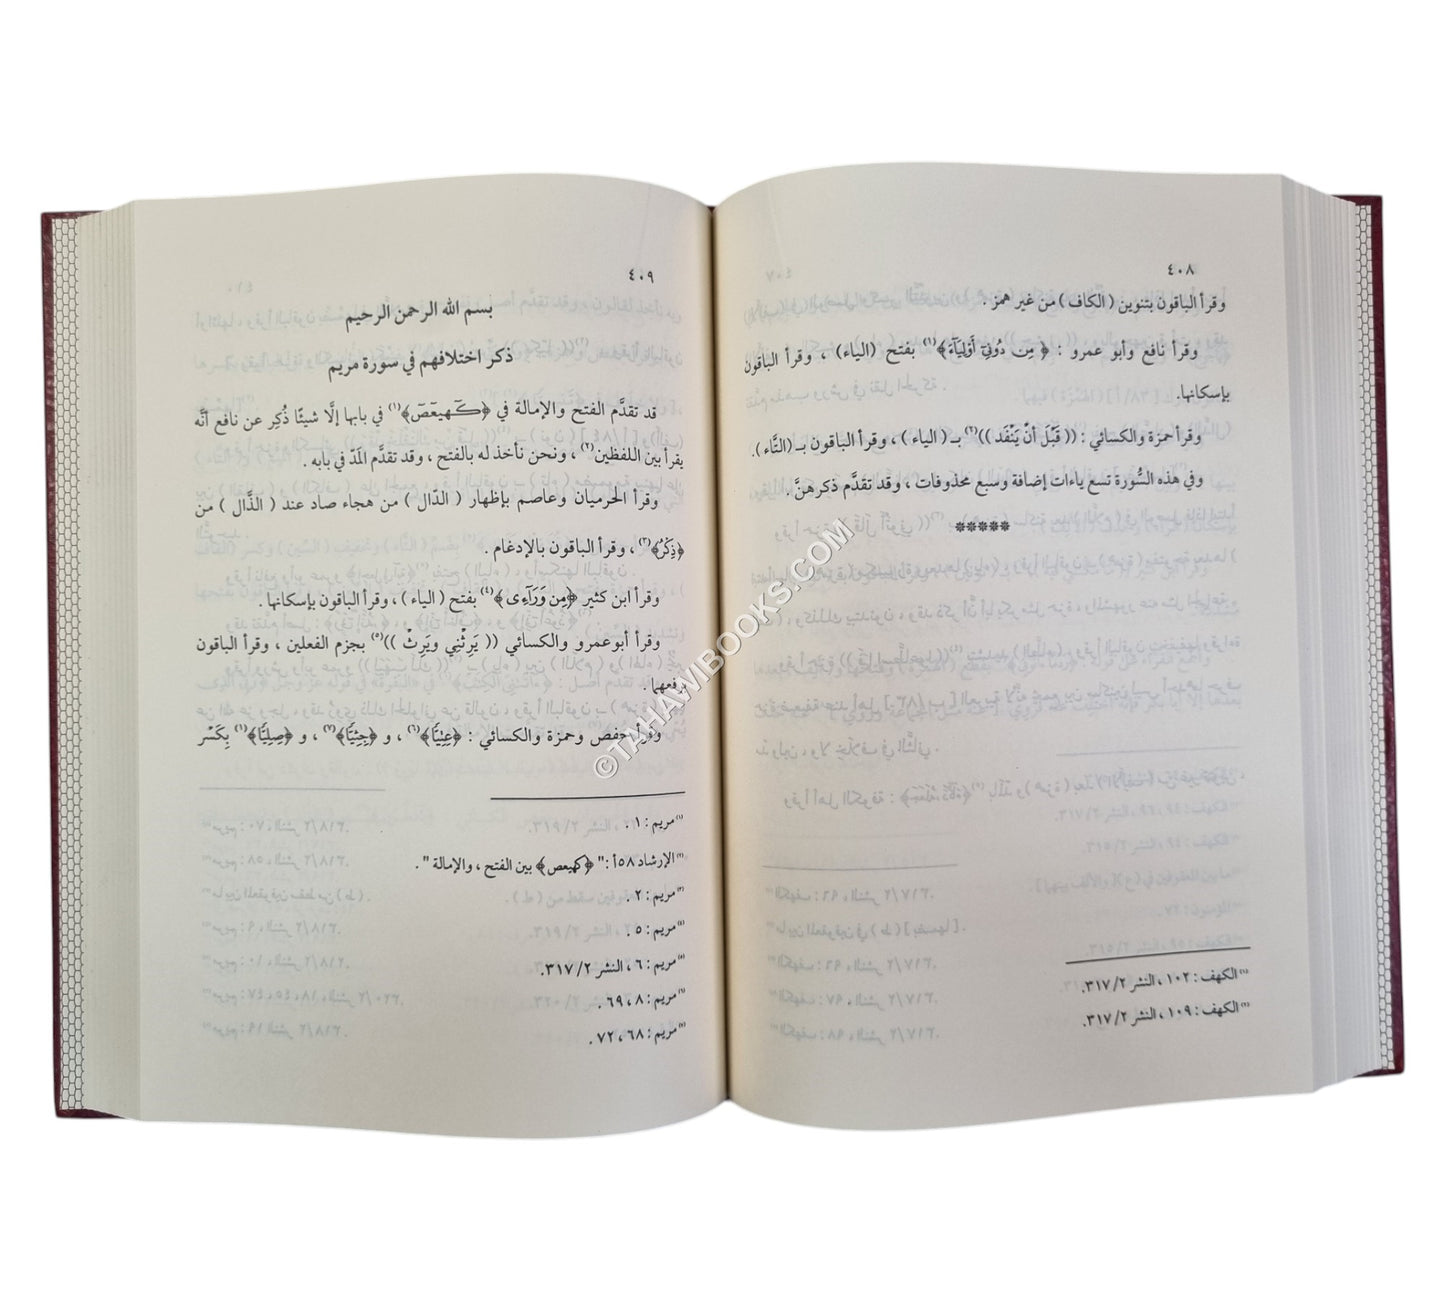 ٤٠٨
وقرأ الباقون بتنوين (الكاف) من غير همز .
وقرأ نافع وأبو عمرو : ﴿ مِن دُونِيٓ أَوْلِيَآءَ﴾(١) بفتح (الياء) ، وقرأ الباقون
بإسكانها.
وقرأ حمزة والكسائي : (( قَبْلَ أنْ يَنْفَد ))(٢) بـ ( الياء ) ، وقرأ الباقون بـ (التَّاء ).
وفي هذه السُّورة تسع ياءات إضافة وسبع محذوفات ، وقد تقدَّم ذكرهنَّ .
*****
(١) الكهف : ١٠٢ ، النشر ٣١٧/٢.
(٢) الكهف : ١٠٩ ، النشر ٣١٧/٢.
٤٠٩
بسم الله الرحمن الرحيم
ذكر اختلافهم في سورة مريم
قد تقدَّم الفتح والإمالة في ﴿كٓهيعٓصٓ﴾(١) في بابها إلَّا شيئًا ذُكِر عن نافع أنَّه
يقرأ بين اللفظين(٢) ، ونحن نأخذ له بالفتح ، وقد تقدَّم المَدّ في بابه .
وقرأ الحرميان وعاصم بإظهار ( الدّال ) من هجاء صاد عند ( الذَّال ) من
﴿ذِكْرُ﴾(٣) ، وقرأ الباقون بالإدغام .
وقرأ ابن كثير ﴿مِن وَرَآءِى﴾(٤) بفتح ( الياء ) ، وقرأ الباقون بإسكانها .
وقرأ أبو عمرو والكسائي (( يَرِثْنِي ويَرِثْ ))(٥) بجزم الفعلين ، وقرأ الباقون
برفعهما .
وقرأ حفص وحمزة والكسائي : ﴿عِتِيًّا﴾(٦) ، و ﴿جِثِيًّا﴾(٧) ، و ﴿صِلِيًّا﴾(٦) بِكَسْر
(١) مريم : ١ .
(٢) الإرشاد ٥٨أ : " ﴿كهيعص﴾ بين الفتح ، والإمالة " .
(٣) مريم : ٢ .
(٤) مريم : ٥ .
(٥) مريم : ٦ ، النشر ٣١٧/٢.
(٦) مريم : ٨ ، ٦٩ .
(٧) مريم : ٦٨ ، ٧٢ .
© TAHAWIBOOKS.COM